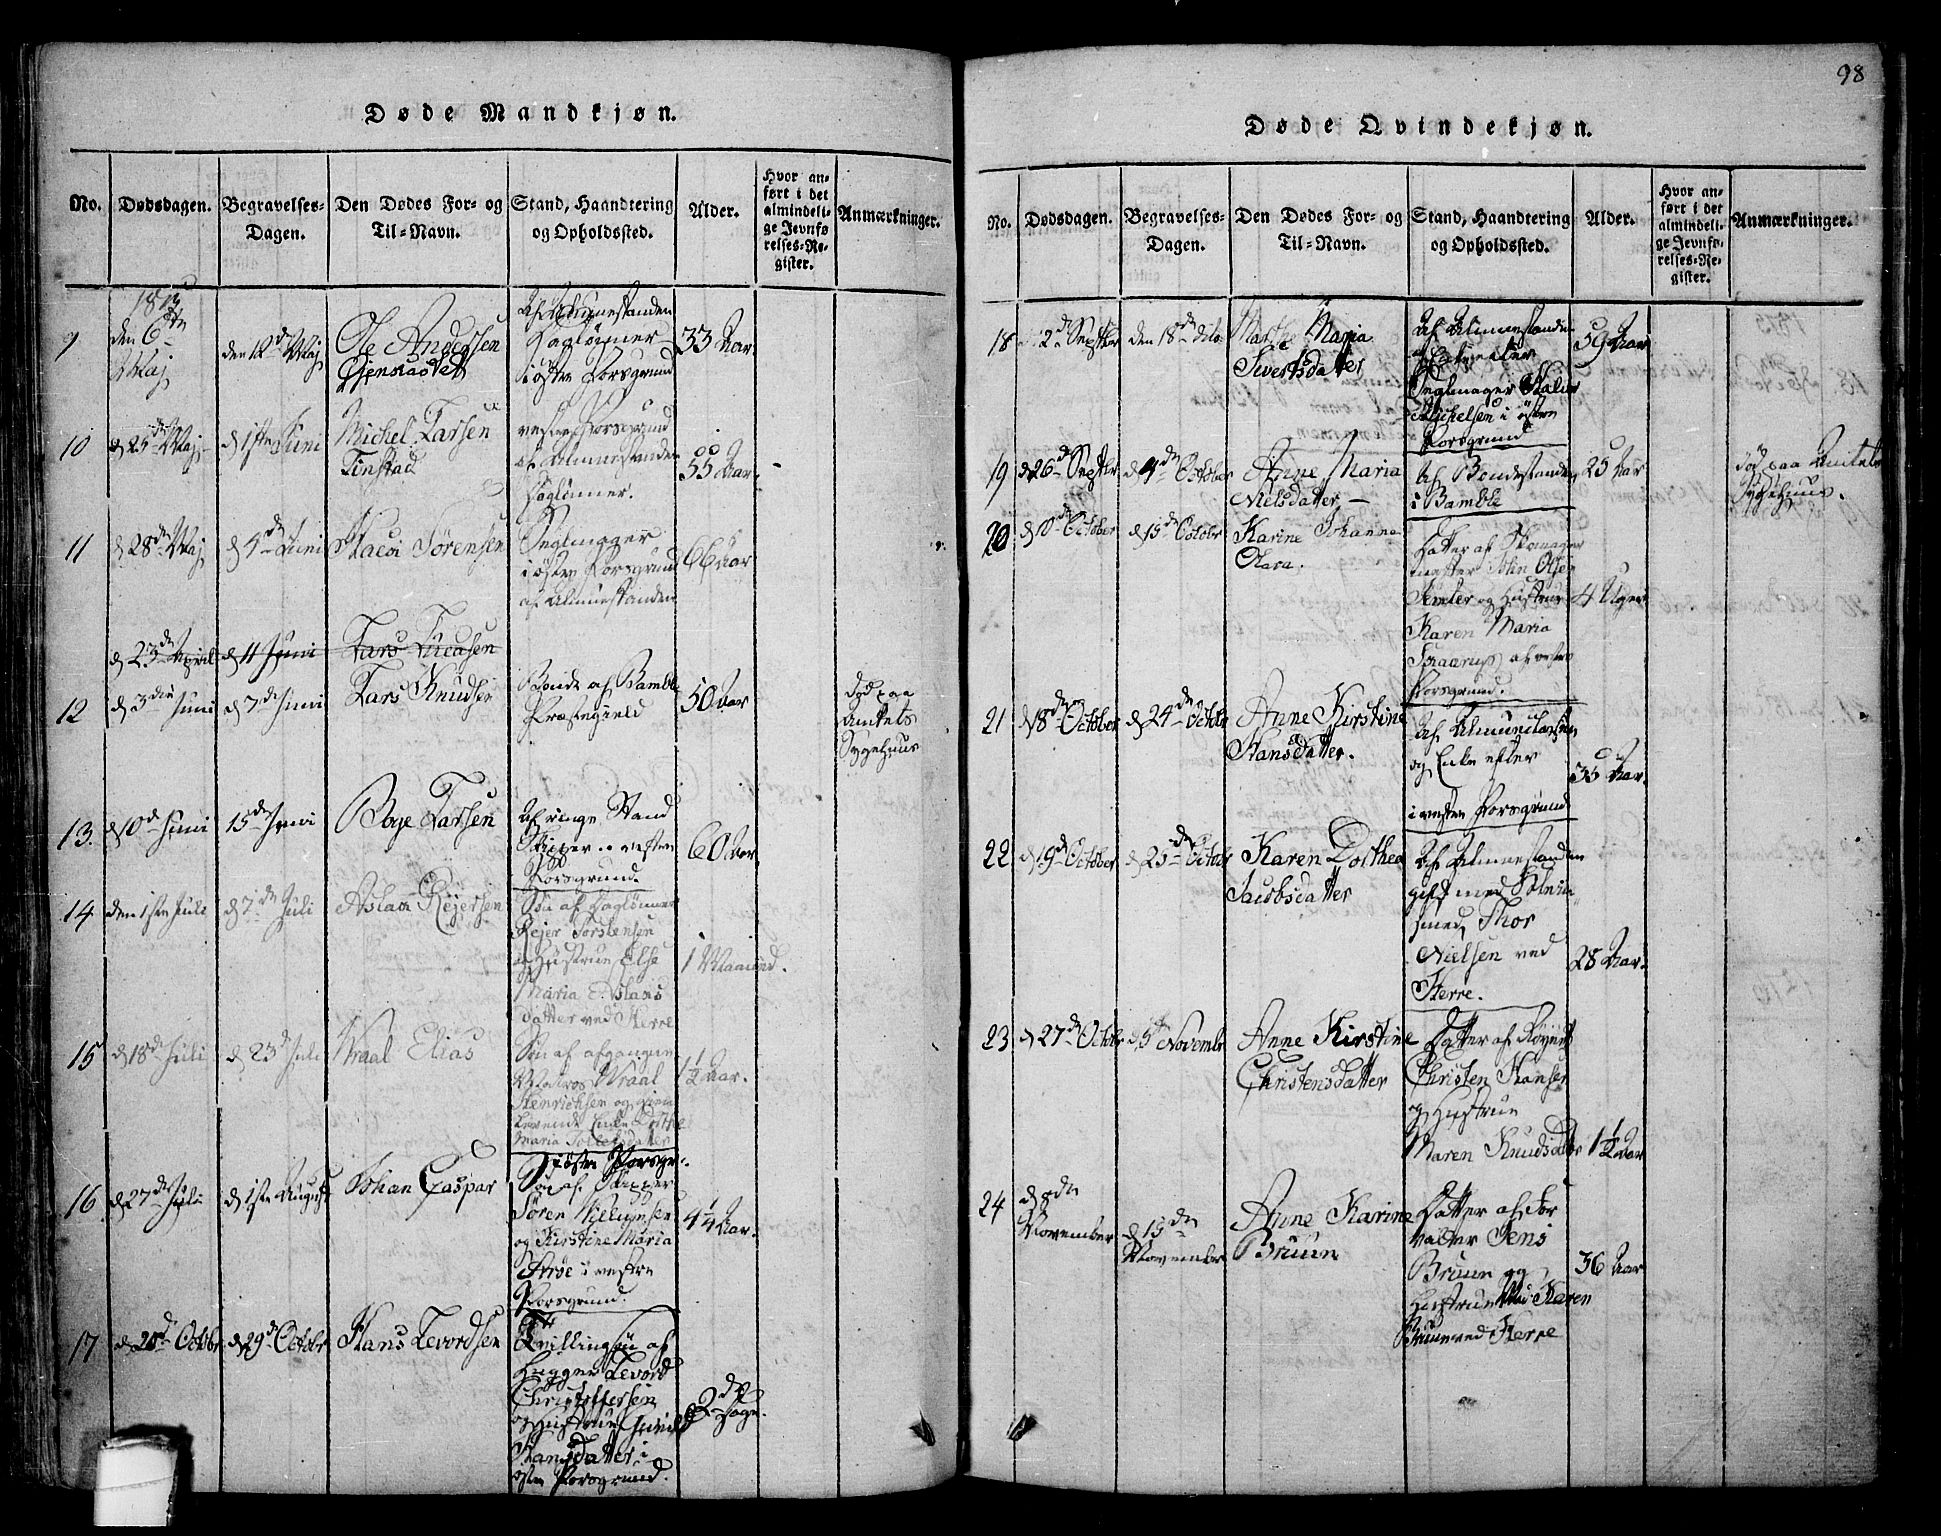 98
Døde Mandkjøn.
No.
Dødsdagen.
Begravelses-
Dagen.
Den Dødes For- og
Til-Navn.
Stand, Haandtering
og Opholdssted.
Alder.
Hvor an-
ført i det
almindeli-
ge Jevnfø-
relses-Re-
gister.
Anmærkninger.
1813
9
den 6te
Maj
den 12d Maj
Ole Andersen
Af Almuestanden
Daglønner
i østre Porsgrund
33 Aar
10
d 25d Maj
d 1ste Juni
Michel Larsen
Tinstad
vestre Porsgrund
af Almuestanden
Daglønner.
55 Aar.
11
d 28d Maj
d 4d Juni
Sørensen
Seglmager
i østre Porsgrund
af Almuestanden
66 Aar
d 23d April
d 4 Juni
Lars
12
d 3die Juni
d 7d Juni
Lars Knudsen
Bonde af Bamble
Præstegield
50 Aar
Død paa
Amtets
Sygehuus
13.
d 10d Juni
15d Juni
Boye Larsen
Af ringe Stand
Skipper i vestre
Porsgrund.
60 Aar
14
den 1ste Juli
d 7d Juli
Aslak Rejersen
Søn af Daglønner
Rejer Torstensen
og Hustrue Else
Maria Aslaks
datter ved Herre
1 Maaned.
15
d 18d Juli
d 23d Juli
Wraal Elias
Søn af afgangne
Matros Wraal
Henrichsen og
levende Enke Dorthe
Maria Tollefsdatter
i østre Porsgr.
1½ Aar.
16
d 27d Juli
d 1ste August
Johan Caspar
Søn af Skipper
Søren
og Kirstine Maria
i vestre
Porsgrund.
4¼ Aar.
17
d 20d Octobr
d 29d Octobr
Hans Levordsen
Tvillingsøn af
Hugger Levord
Christophersen
og Hustrue
Hansdatter i
østre Porsgrund.
2 Dage.
Døde Qvindekjøn.
No.
Dødsdagen.
Begravelses-
Dagen.
Den Dødes For- og
Til-Navn.
Stand, Haandtering
og Opholdssted.
Alder.
Hvor an-
ført i det
almindeli-
ge Jevnfø-
relses-Re-
gister.
Anmærkninger.
18
12d Septbr
den 18d dito
Maria
Sivertsdatter
Af Almuestanden
og Enke efter
Seglmager
Michelsen i østre
Porsgrund
59 Aar
19
d 26d Septbr
d 4d October
Anne Maria
Nielsdatter
Af Bondestanden
i Bamble
25 Aar
Død paa Amtets
Sygehuus.
20
d 10d October
d 15d Octobr
Karine Johanne
Olava.
Datter af Skomager
mester John Olsen
Semler og Hustrue
Karen Maria
af vestre
Porsgrund.
4 Uger
21
d 18d October
d 24d Octobr
Anne Kirstine
Hansdatter.
Af Almuestanden
og Enke efter
i vestre Porsgrund
35 Aar.
22
d 19d October
d 25d Octobr
Karen Dorthea
Jacobsdatter
Af Almuestanden
gift med Klein
smed Thor
Nielsen ved
Herre.
28 Aar.
23
d 27d Octobr
d 5te Novembr
Anne Kirstine
Christensdatter
Datter af
Christen Hansen
og Hustrue
Maren Knudsdatter
1½ Aar
24
d 8de
November
d 15de
November
Anne Karine
Bruun
Datter af For
valter Jens
Bruun og
Hustrue Karen
Bruun ved Herre
36 Aar